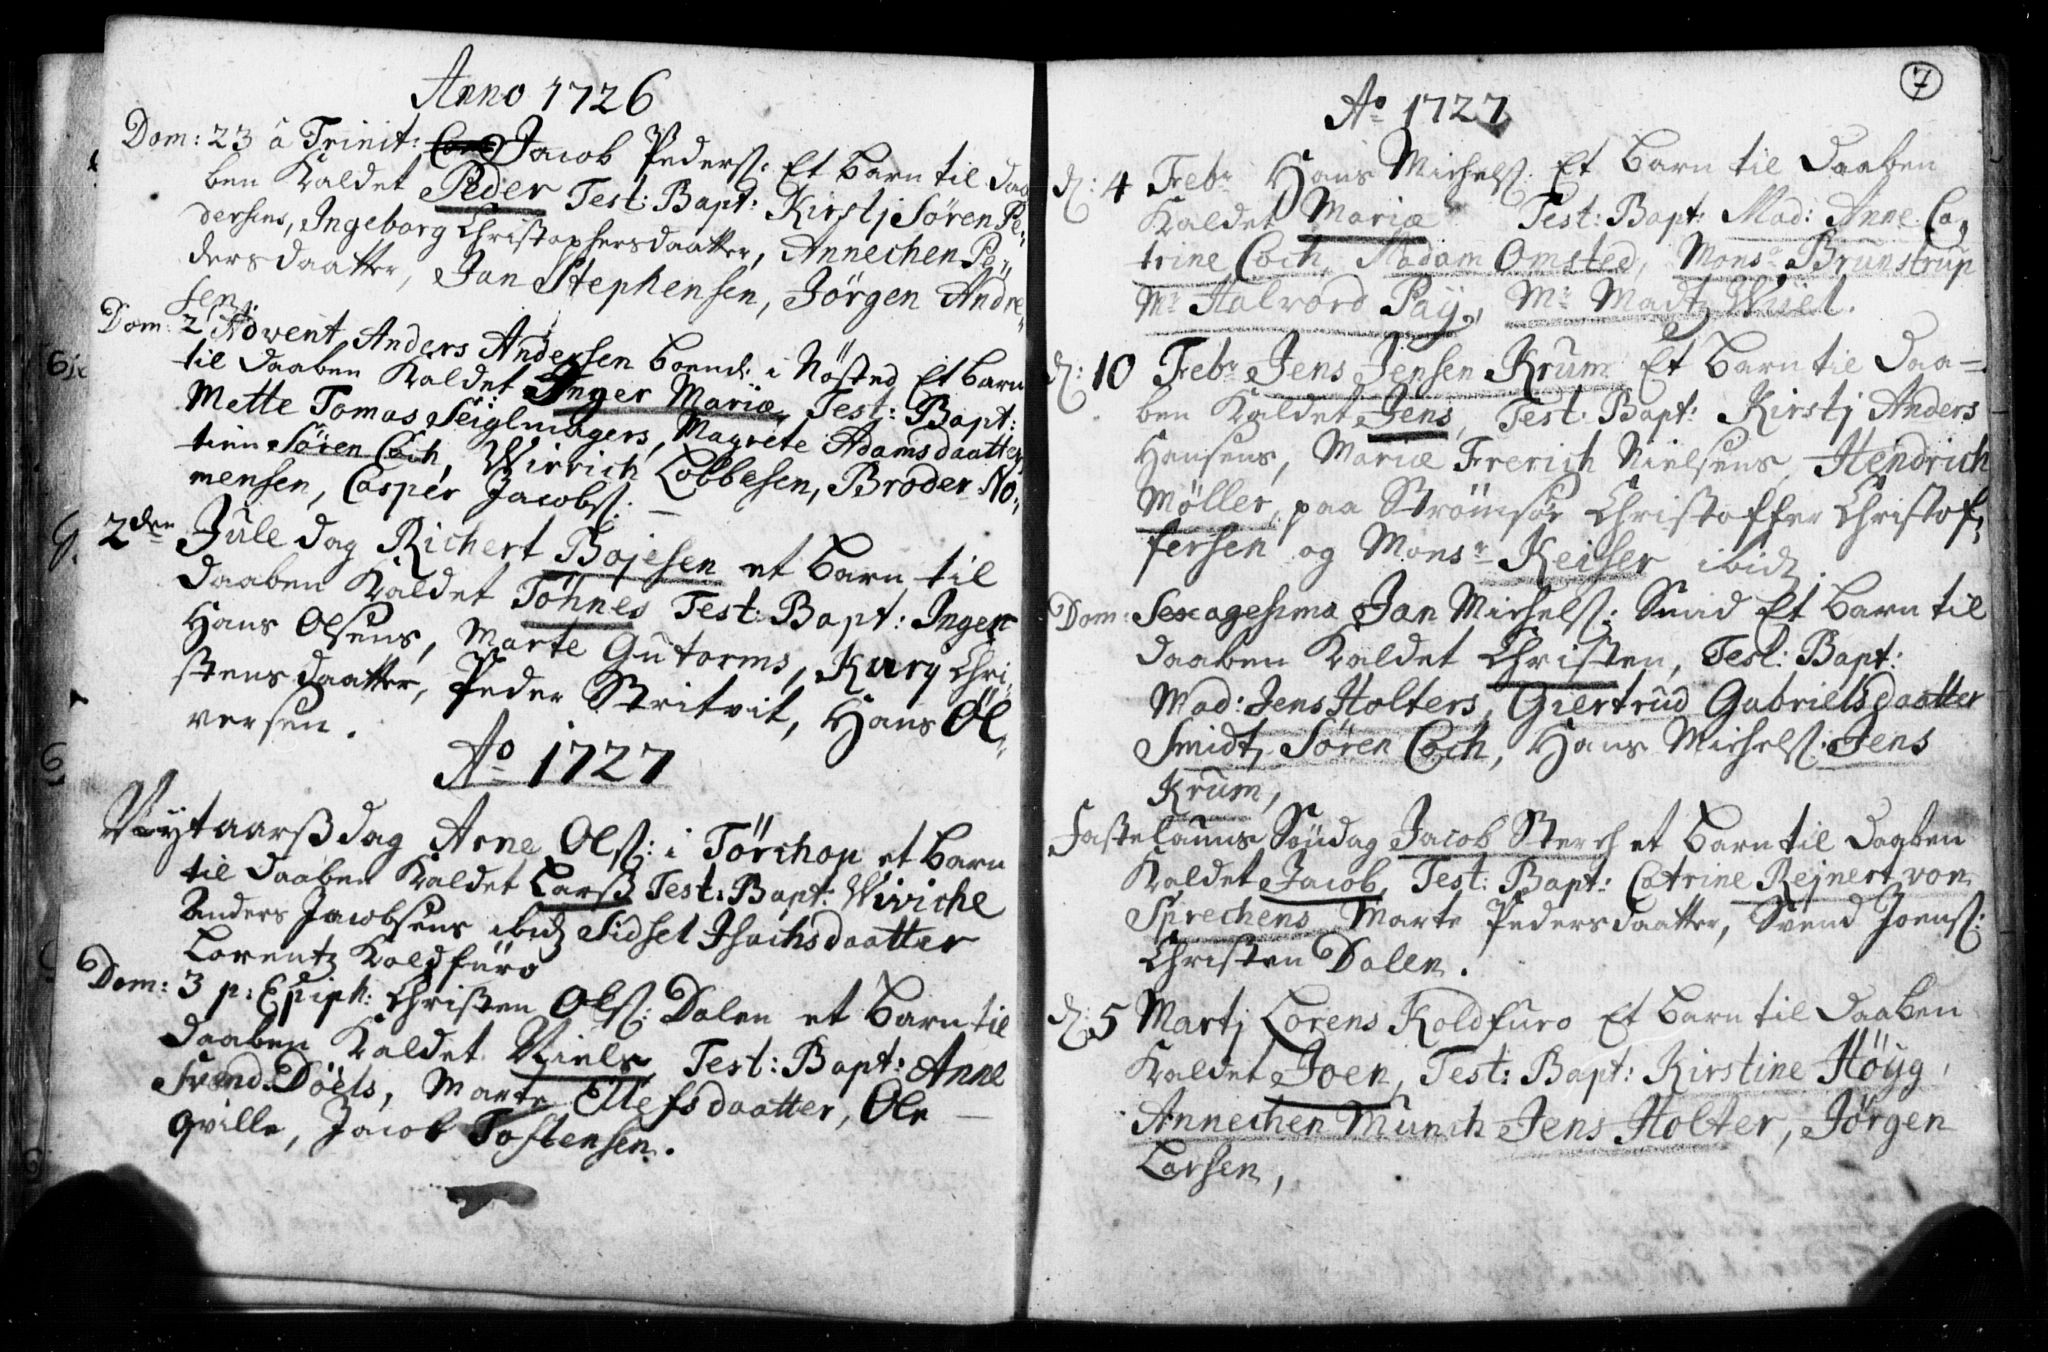 Anno 1726
Dom: 23 â Trinit: Jacob Peders: Et barn til daa
ben kaldet Peder Test: Bapt: Kirstj Sören Pe-
dersens, Ingeborg Christophersdaatter, Annechen Pe-
dersdaatter, Jan Stephensen, Jörgen Andre-
sen.
Dom: 2 Advent Anders Andersen boend: i Nösted Et barn
til daaben kaldet Inger Mariæ, Test: Bapt:
Mette Tomas Seiglmagers, Magrete Adamsdaatter
Sören Coch, Wirrich Lobbesen, Broder No-
mensen, Casper Jacobs:
2den Jule dag Richert Bojesen et barn til
daaben kaldet Töhnes Test: Bapt: Inger
Hans Olsens, Marte Gutorms, Kary Chri-
stensdaatter, Peder Stritvit, Hans Öl-
versen.
Ao 1727
Nytaarsdag Arne Ols: i Törchop et barn
til daaben kaldet Larss Test: Bapt: Wiviche
Anders Jacobsens ibid Sidsel Isachsdaatter
Lorentz Koldfüro
Dom: 3 p: Epiph: Christen Ols: Dalen et barn til
daaben kaldet Niels, Test: Bapt: Anne
Svend Döels, Marte Ellefsdaatter, Ole
Qville, Jacob Tostensen.
7
Ao 1727
d: 4 Febr Hans Michels: Et barn til daaben
kaldet Mariæ Test: Bapt: Mad: Anne Ca-
trine Coch, Madam Omsted, Monsr Brunstrup
Mr Halvord Paÿ, Mr Madtz Wiel.
d: 10 Febr Jens Jensen Krüm Et barn til daa-
ben kaldet Jens, Test: Bapt: Kirstj Anders
Hansens, Mariæ Frerich Nielsens, Hendrich
Möller, paa Strömsöe Christoffer Christof-
fersen og Monsr Keiser ibid.
Dom: Sexagesima Jan Michels: Smid Et barn til
daaben kaldet Christen, Test: Bapt:
Mad: Jens Holters, Giertrud Gabrielsdaatter
Smidt, Sören Coch, Hans Michels: Jens
Krüm,
Fastelauns Söndag Jacob Sterch et barn til daaben
kaldet Jacob, Test: Bapt: Catrine Rejnert von
Sprechens Marte Pedersdaatter, Svend Joens:
Christen Dalen.
d: 5 Martj Lorens Koldfuro Et barn til daaben
kaldet Joen, Test: Bapt: Kirstine Höyg,
Annechen Münch Jens Holter, Jörgen
Larsen,